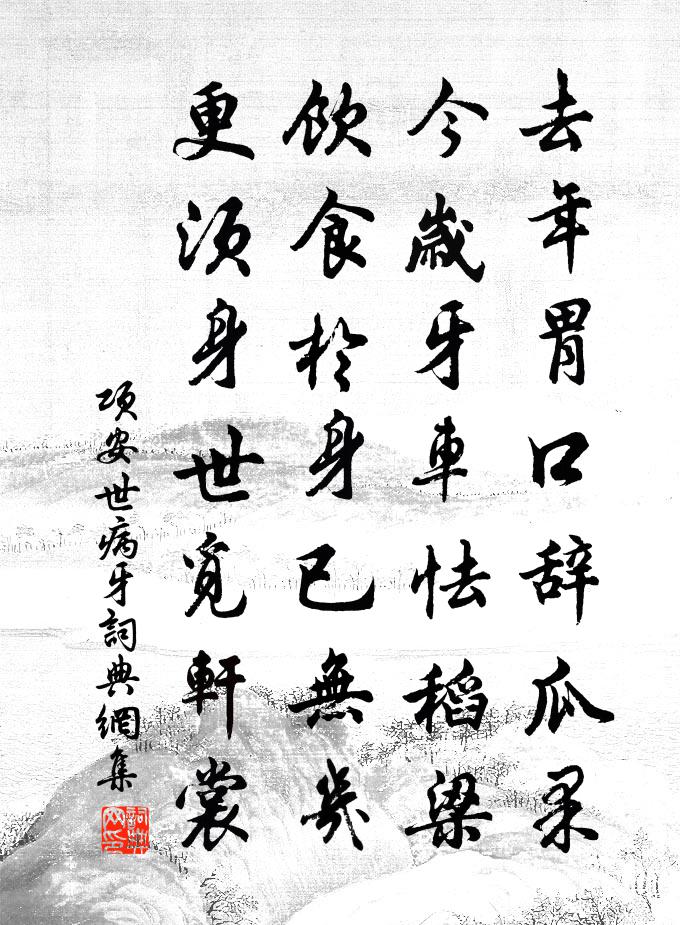 去年胃口辞瓜果
今歲牙車怯稻粱
飲食於身已無幾
更須身世覓軒裳
項安世病牙詞典網集